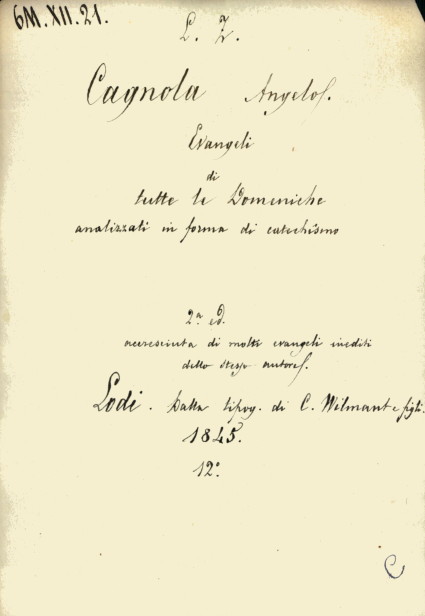 6M.XII.21.
L. Z.
Cagnola Angelo.
Evangeli
di
tutte le Domeniche
analizzati in forma di catechismo
2ª ed.
accresciuta di molti evangeli inediti
dello stesso autore.
Lodi. Dalla tipog. di C. Wilmant e figli.
1845.
12º.
C